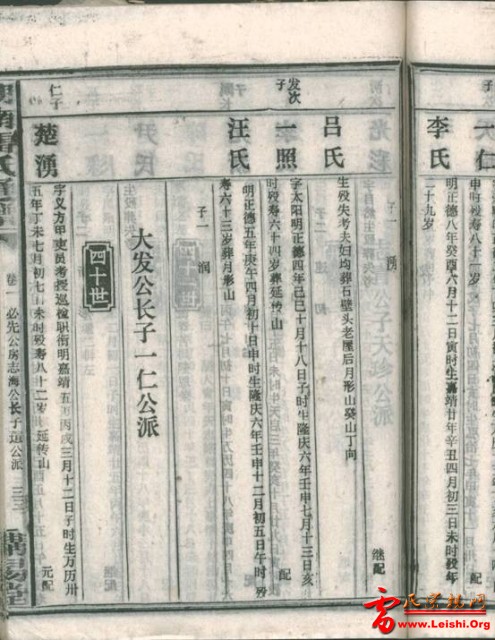 天仁
申时殁寿八十一岁
李氏
明正德八年癸酉六月十二日寅时生嘉靖廿年辛丑四月初三日未时殁年
二十九岁
继配
吕氏
生殁失考夫妇均葬石壁头老屋后月形山癸山丁向
发次子
一照
字太阳明正德四年己巳十月十八日子时生隆庆六年壬申七月十三日亥
时殁寿六十四岁葬延传山
配
汪氏
明正德五年庚午四月初十日申时生隆庆六年壬申十二月初五日午时殁
寿六十三岁葬月形山
子一
润
大发公长子一仁公派
四十世
仁子
楚湧
字义方甲吏员考授巡检职衔明嘉靖五年丙戌三月十二日子时生万历卅
五年丁未七月初七日未时殁寿八十二岁 延传山
元配
卷一
必先公房志海公长子道公派
三三
雷氏宗族网
www.Leishi.Org